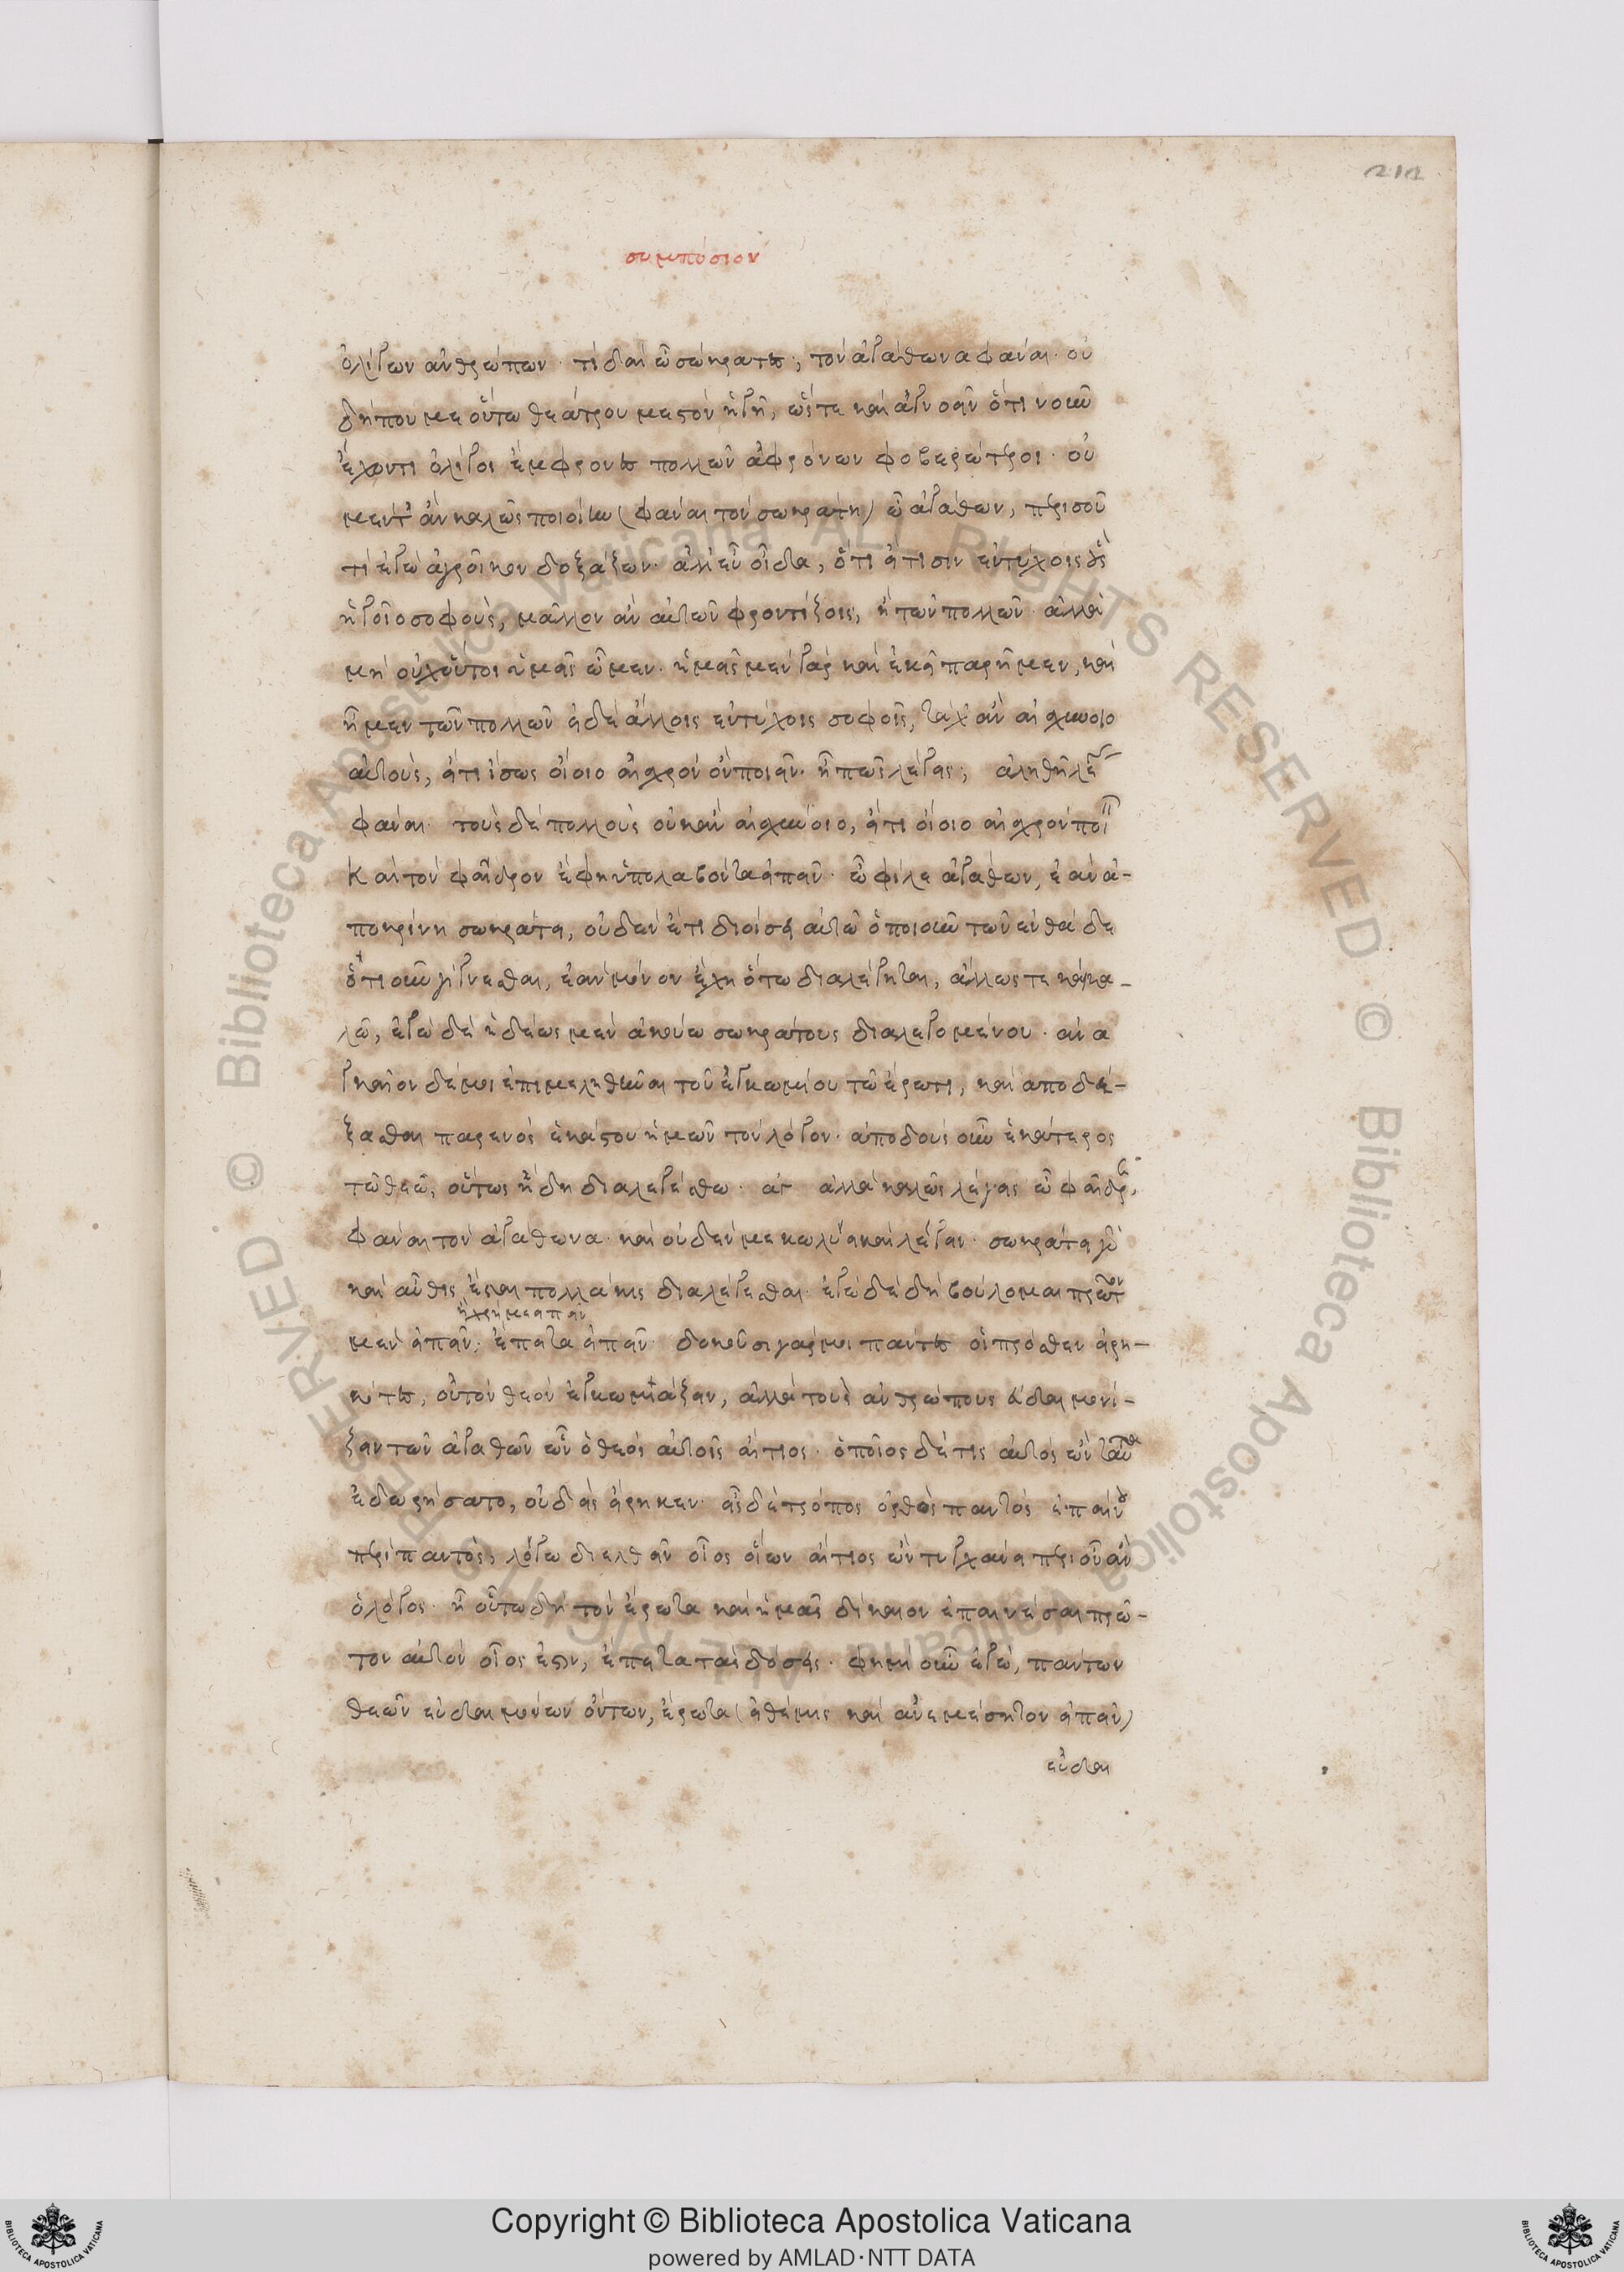 212
συμπόσιον
ὀλίγων ἀνθρώπων· τί δαὶ ὦ σώκρατες; τὸν ἀγάθωνα φάναι· οὐ
δήπου με οὕτω θεάτρου μεστὸν ἡγῇ, ὥστε καὶ ἀγνοεῖν ὅτι νοῦν
ἔχοντι ὀλίγοι ἔμφρονες πολλῶν ἀφρόνων φοβερώτεροι· οὐ
μέντ' ἂν καλῶς ποιοίην (φάναι τὸν σωκράτη) ὦ ἀγάθων, περὶ σοῦ
τὶ ἐγὼ ἄγροικον δοξάζων· ἀλλ' εὖ οἶδα, ὅτι εἴ τισιν ἐντύχοις οὓς
ἡγοῖο σοφοὺς, μᾶλλον ἂν αὐτῶν φροντίζοις, ἢ τῶν πολλῶν· ἀλλὰ
μὴ οὐχ οὗτοι ἡμεῖς ὦμεν· ἡμεῖς μὲν γὰρ καὶ ἐκεῖ παρῆμεν, καὶ
ἦμεν τῶν πολλῶν εἰ δὲ ἄλλοις ἐντύχοις σοφοῖς, τάχ' ἂν αἰσχύνοιο
αὐτοὺς, εἴ τι ἴσως οἴοιο αἰσχρὸν ὂν ποιεῖν· ἢ πῶς λέγεις; ἀληθῆ λέγεις
φάναι· τοὺς δὲ πολλοὺς οὐκ ἂν αἰσχύνοιο, εἴ τι οἴοιο αἰσχρὸν ποιεῖν
Καὶ τὸν φαῖδρον ἔφη ὑπολαβόντα εἰπεῖν· ὦ φίλε ἀγάθων, ἐὰν ἀ-
ποκρίνῃ σωκράτει, οὐδὲν ἔτι διοίσει αὐτῷ ὁποιοῦν τῶν ἐνθάδε
ὅτι οὖν γίγνεσθαι, ἐὰν μόνον ἔχῃ ὅτῳ διαλέγηται, ἄλλως τε κἂν κα-
λῷ, ἐγὼ δὲ ἡδέως μὲν ἀκούω σωκράτους διαλεγομένου· ἀνα
γκαῖον δέ μοι ἐπιμεληθῆναι τοῦ ἐγκωμίου τῷ ἔρωτι, καὶ ἀποδέ-
ξασθαι παρ ενὸς ἑκάστου ἡμῶν τὸν λόγον· ἀποδοὺς οὖν ἑκάτερος
τῷ θεῷ, οὕτως ἤδη διαλεγέσθω· ἀγ ἀλλὰ καλῶς λέγεις ὦ φαῖδρε,
φάναι τὸν ἀγάθωνα· καὶ οὐδέν με κωλύει καὶ λέγειν· σωκράτει γὰρ
καὶ αὖθις ἔσται πολλάκις διαλέγεσθαι· ἐγὼ δὲ δὴ βούλομαι πρῶτον
ᾗ χρή με εἰπεῖν
μὲν εἰπεῖν· ἔπειτα εἰπεῖν· δοκοῦσι γάρ μοι πάντες οἱ πρόσθεν εἰρη-
κότες, οὐ τὸν θεὸν ἐγκωμιάζειν, ἀλλὰ τοὺς ἀνθρώπους εὐδαιμονί-
ζειν τῶν ἀγαθῶν ὧν ὁ θεὸς αὐτοῖς αἴτιος· ὁποῖος δέ τις αὐτὸς ὢν ταῦτα
ἐδωρήσατο, οὐδεὶς εἴρηκεν· εἷς δὲ τρόπος ὀρθὸς παντὸς ἐπαίνου
περὶ παντὸς, λόγῳ διελθεῖν οἷος οἵων αἴτιος ὢν τυγχάνει περὶ οὗ ἂν
ὁ λόγος· ἦ οὕτω δὴ τὸν ἔρωτα καὶ ἡμᾶς δίκαιον ἐπαινέσαι πρῶ-
τον αὐτὸν οἷος ἐστιν, ἔπειτα τὰς δόσεις· φημὶ οὖν ἐγὼ, πάντων
θεῶν εὐδαιμόνων ὄντων, ἔρωτα (εἰ θέμις καὶ ἀνεμέσητον εἰπεῖν)
εὐδαι